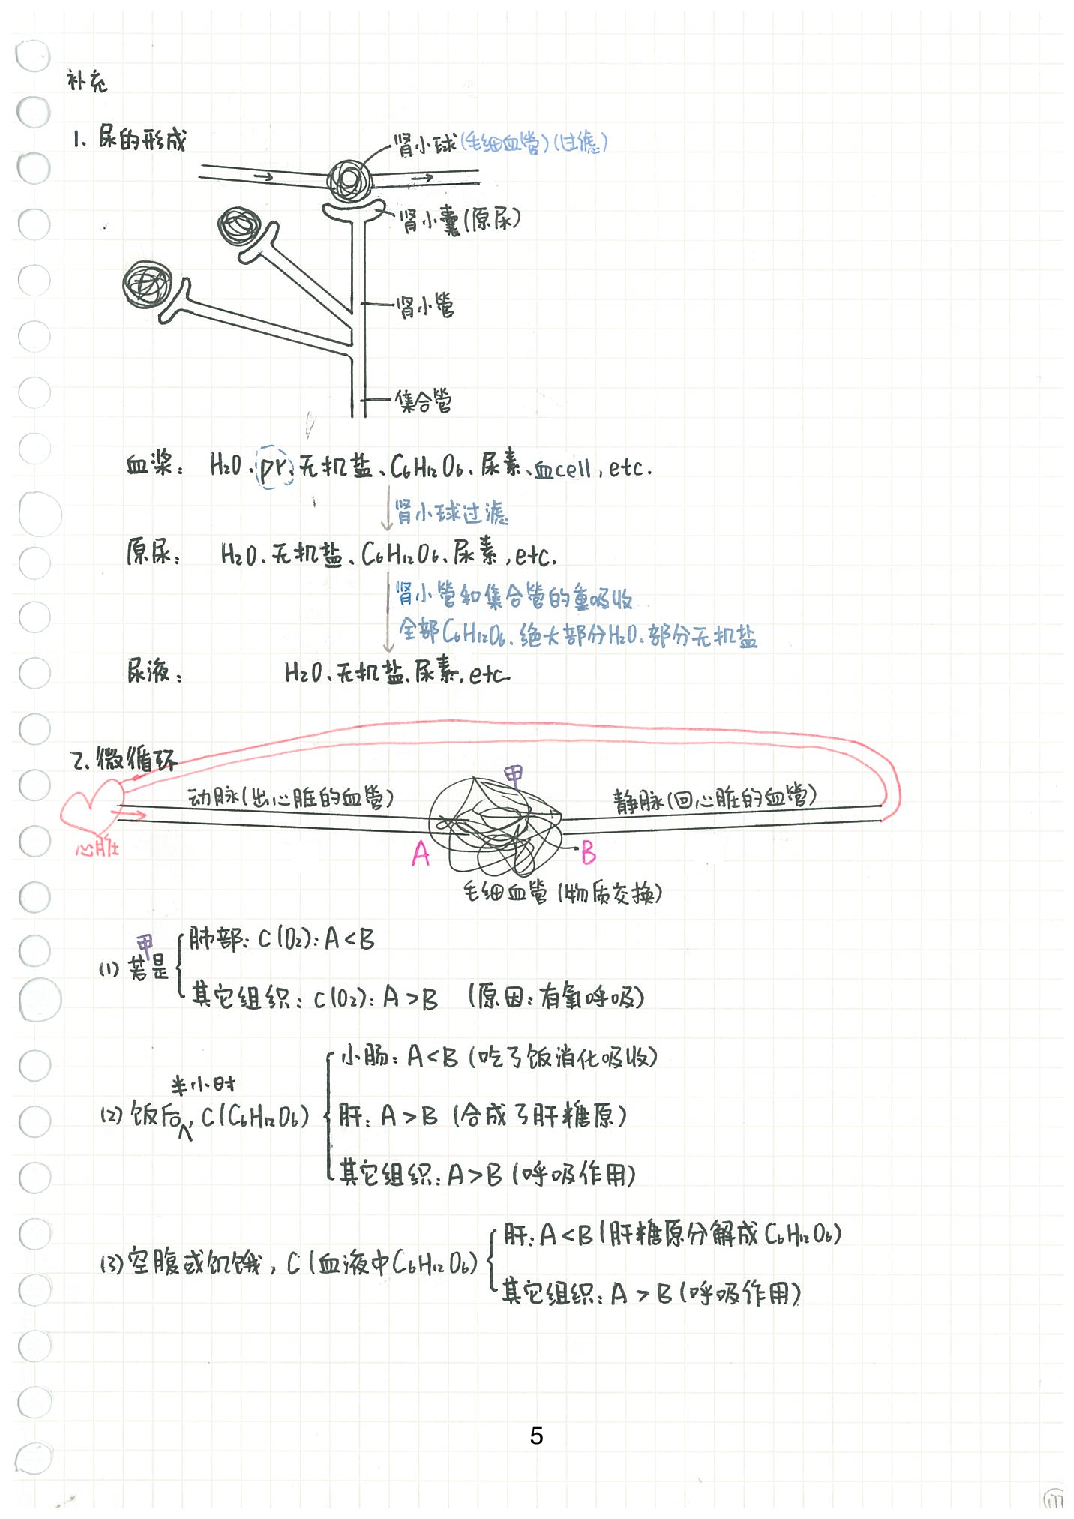 补充
1. 尿的形成
肾小球(毛细血管)(过滤)
肾小囊(原尿)
肾小管
集合管
血浆: H₂O、pr、无机盐、C₆H₁₂O₆、尿素、血cell, etc.
肾小球过滤
原尿: H₂O、无机盐、C₆H₁₂O₆、尿素, etc.
肾小管和集合管的重吸收
全部C₆H₁₂O₆、绝大部分H₂O、部分无机盐
尿液: H₂O、无机盐、尿素, etc
2. 微循环
甲
动脉(出心脏的血管)
静脉(回心脏的血管)
心脏
A
B
毛细血管(物质交换)
(1) 若甲是
肺部: C(O₂): A<B
其它组织: C(O₂): A>B (原因: 有氧呼吸)
(2) 饭后半小时, C(C₆H₁₂O₆)
小肠: A<B (吃了饭消化吸收)
肝: A>B (合成了肝糖原)
其它组织: A>B (呼吸作用)
(3) 空腹或饥饿, C(血液中C₆H₁₂O₆)
肝: A<B (肝糖原分解成C₆H₁₂O₆)
其它组织: A>B (呼吸作用)
5